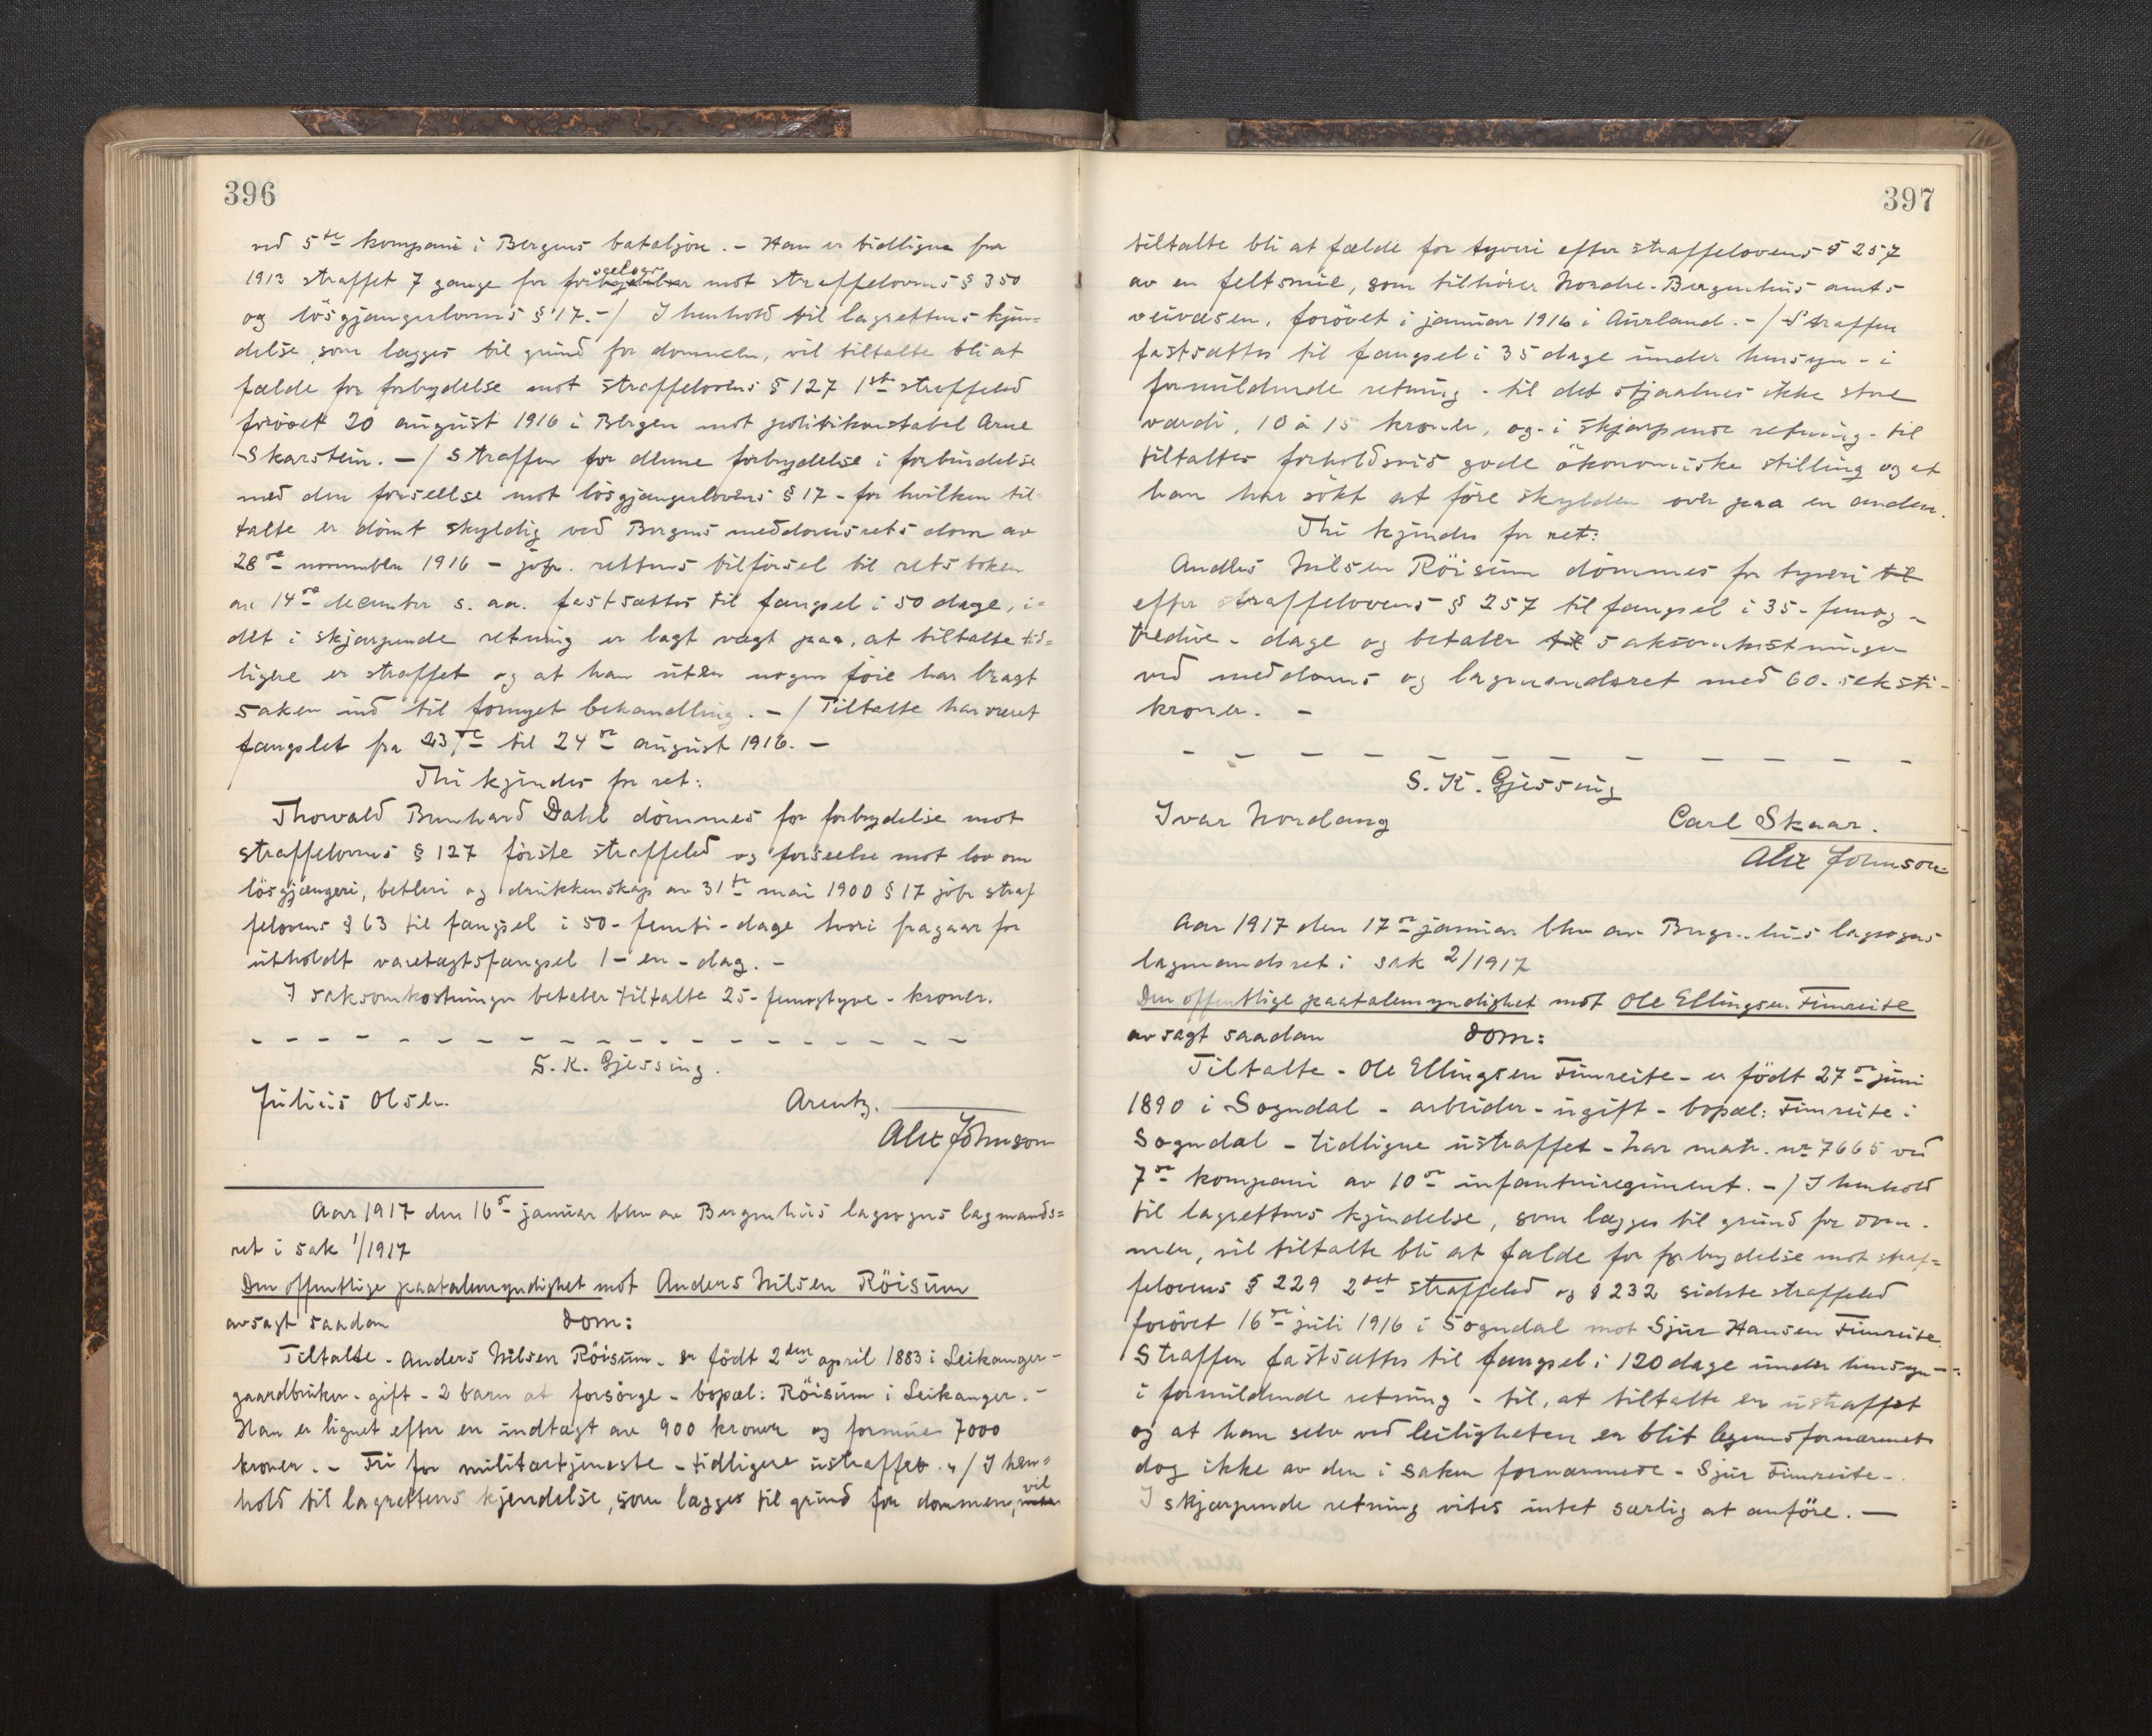 396
ved 5te kompani i Bergens bataljon. - Han er tidligere fra
1913 straffet 7 gange for forseelser mot straffelovens § 350
og lösgjængerlovens § 17. -/ I henhold til lagrettens kjen=
delse, som lægges til grund for dommen, vil tiltalte bli at
fælde for forbrydelse mot straffelovens § 127 1ste straffeled
forövet 20 august 1916 i Bergen mot politikonstabel Arne
Skarstein. -/ Straffen for denne forbrydelse i forbindelse
med den forseelse mot lösgjængerlovens § 17 - for hvilken til-
talte er dömt skyldig ved Bergens meddomsrets dom av
28de november 1916 - jvfr. rettens tilförsel til retsboken
av 14de december s. aa. fastsættes til fængsel i 50 dage, i=
det i skjærpende retning er lagt vægt paa, at tiltalte tid=
ligere er straffet og at han uten nogen föie har bragt
saken ind til fornyet behandling. -/ Tiltalte har været
fængslet fra 23de til 24de august 1916. -
Thi kjendes for ret:
Thorvald Bernhard Dahl dömmes for forbrydelse mot
straffelovens § 127 förste straffeled og forseelse mot lov om
lösgjængeri, betleri og drukkenskap av 31te mai 1900 § 17 jvfr straf
felovens § 63 til fængsel i 50 - femti - dage hvori fragaar for
utholdt varetægtsfængsel 1 - en - dag. -
I saksomkostninger betaler tiltalte 25 - femogtyve - kroner.
S. K. Gjessing.
Julius Olsen. Arentz.
Alex Johnson
Aar 1917 den 16de januar blev av Bergenhus lagsogns lagmands=
ret i sak 1/1917
Den offentlige paatalemyndighet mot Anders Nilsen Röisum
avsagt saadan dom:
Tiltalte - Anders Nilsen Röisum - er födt 2den april 1883 i Leikanger -
gaardbruker - gift - 2 barn at forsörge - bopæl: Röisum i Leikanger. -
Han er lignet efter en indtægt av 900 kroner og formue 7000
kroner. - Fri for militærtjeneste - tidligere ustraffet. -/ I hen=
hold til lagrettens kjendelse, som lægges til grund for dommen, vil
397
tiltalte bli at fælde for tyveri efter straffelovens § 257
av en feltsmie, som tilhörer Nordre-Bergenhus amts
veivæsen, forövet i januar 1916 i Aurland. -/ Straffen
fastsættes til fængsel i 35 dage under hensyn - i
formildende retning - til det stjaalnes ikke store
værdi, 10 à 15 kroner, og - i skjærpende retning - til
tiltaltes forholdsvis gode ökonomiske stilling og at
han har sökt at före skylden over paa en anden.
Thi kjendes for ret:
Anders Nilsen Röisum dömmes for tyveri til
efter straffelovens § 257 til fængsel i 35 - femog -
tredive - dage og betaler til saksomkostninger
ved meddoms og lagmandsret med 60 - seksti -
kroner. -
S. K. Gjessing
Ivar Nordang Carl Skaar.
Alex Johnson
Aar 1917 den 17de januar blev av Bergenhus lagsogns
lagmandsret i sak 2/1917
Den offentlige paatalemyndighet mot Ole Ellingsen Fimreite
avsagt saadan dom:
Tiltalte - Ole Ellingsen Fimreite - er födt 27de juni
1890 i Sogndal - arbeider - ugift - bopæl: Fimreite i
Sogndal - tidligere ustraffet - har matr. nr 7665 ved
7de kompani av 10de infanteriregiment. -/ I henhold
til lagrettens kjendelse, som lægges til grund for dom-
men, vil tiltalte bli at fælde for forbrydelse mot straf=
felovens § 229 2det straffeled og § 232 sidste straffeled
forövet 16de juli 1916 i Sogndal mot Sjur Hansen Fimreite.
Straffen fastsættes til fængsel i 120 dage under hensyn -
i formildende retning - til, at tiltalte er ustraffet
og at han selv ved leiligheten er blit legemsfornærmet
dog ikke av den i saken fornærmede - Sjur Fimreite -.
I skjærpende retning vites intet særlig at anföre. -